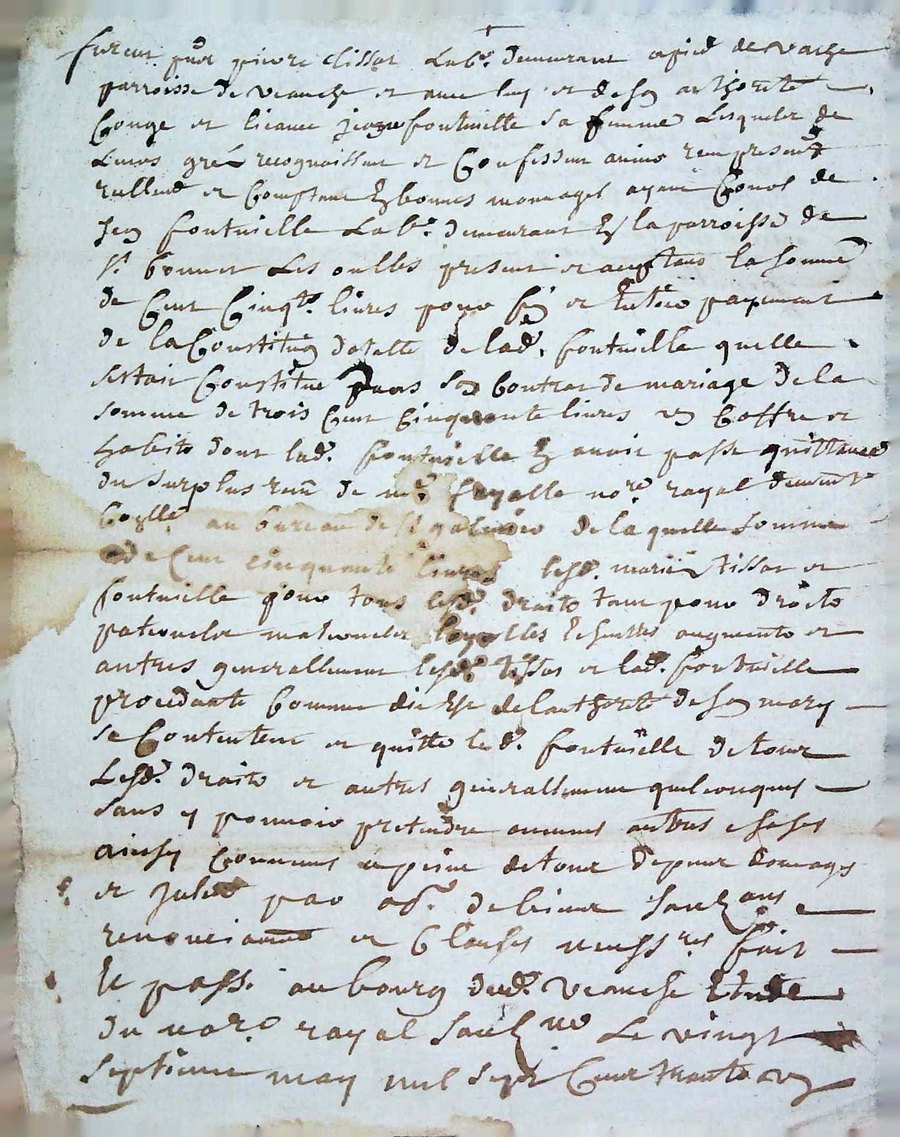 furent pnts pierre tissot Labr. demeurant a pied de vache
parroisse de veauche et avec luy et de son authorité
Conge et licance jeane fontvielle sa femme Lesquels de
Leurs gréz recognoissent et Confessent avoir
en bonnes monnayes ayant Cours de
Jean fontvielle Labr. demeurant en la parroisse de
st. bonnet Les oulles present et acceptant la somme
de Cent Cinqte. livres pour fin et entier payement
de la Constitution dotalle de lade. fontvielle quelle
sestait Constitué dans son Contrat de mariage de la
somme de trois Cent Cinquante livres un Coffre et
habits dont lade. fontvielle en avoit passe quittance
du surplus de me. no.re royal
au bureau de st galmier de laquelle somme
de Cent cinquante livres lesd. mariés tissot et
fontvielle pour tous lesd. droits tant pour droits
paternels maternels augments et
autres generallement lesd. tissot et lad. fontvielle
procedante Comme dit est de lauthorité de son mary
se Contentent et quitte led. fontvielle de tous
Lesd. droits et autres generallement quelconques
sans y pouvoir pretendre aucunes autres choses
ainsy Convenus a peine de tous depens domages
et
renonciations et Clauses necessres fait
Et passé au bourg dud. veauche Etude
du no.re royal Le vingt
septieme may mil sept Cent trante un